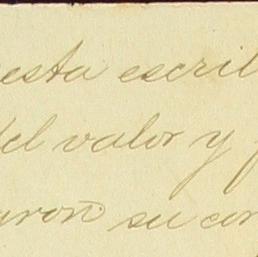 esta escri
del valor y
aron su con